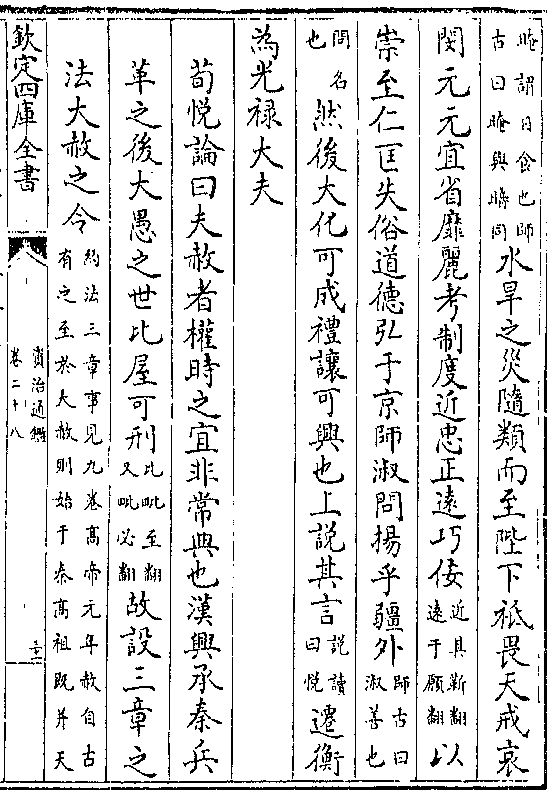 晻謂日食也師古曰晻與暗同水旱之災隨類而至陛下祗畏天戒哀
閔元元宜省靡麗考制度近忠正逺巧佞近具靳翻逺于願翻以
崇至仁匡失俗道德弘于京師淑問揚乎疆外師古曰淑善也
問名也然後大化可成禮讓可興也上説其言説讀曰悦遷衡
為光禄大夫
荀悦論曰夫赦者權時之宜非常典也漢興承秦兵
革之後大愚之世比屋可刑比毗至翻又毗必翻故設三章之
法大赦之令約法三章事見九卷髙帝元年赦自古有之至於大赦則始于秦髙祖既并天
欽定四庫全書
資治通鑑
卷二十八